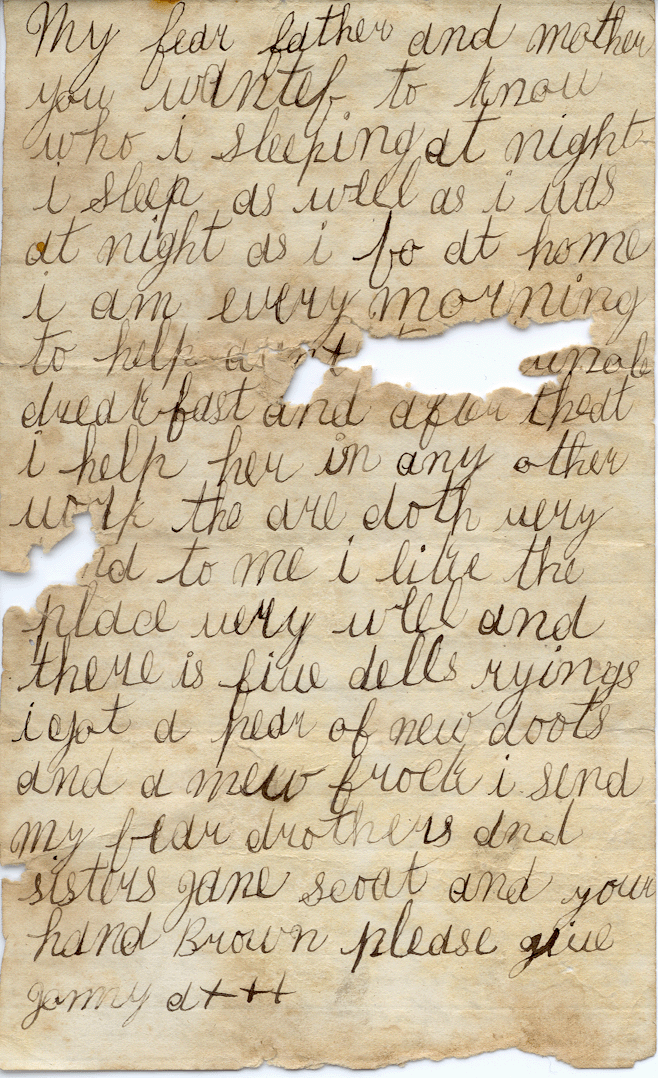 My fear father and mother
you wantef to know
who i sleeping at night
i sleep as well as i uds
at night as i fo at home
i am every morning
to help
dreakfast and after thedt
i help her in any other
work the are doth very
to me i like the
place very well and
there is five dells ryings
i got a pear of new doots
and a mew frock i send
my fear drothers and
sisters jane scoat and your
hand Brown please give